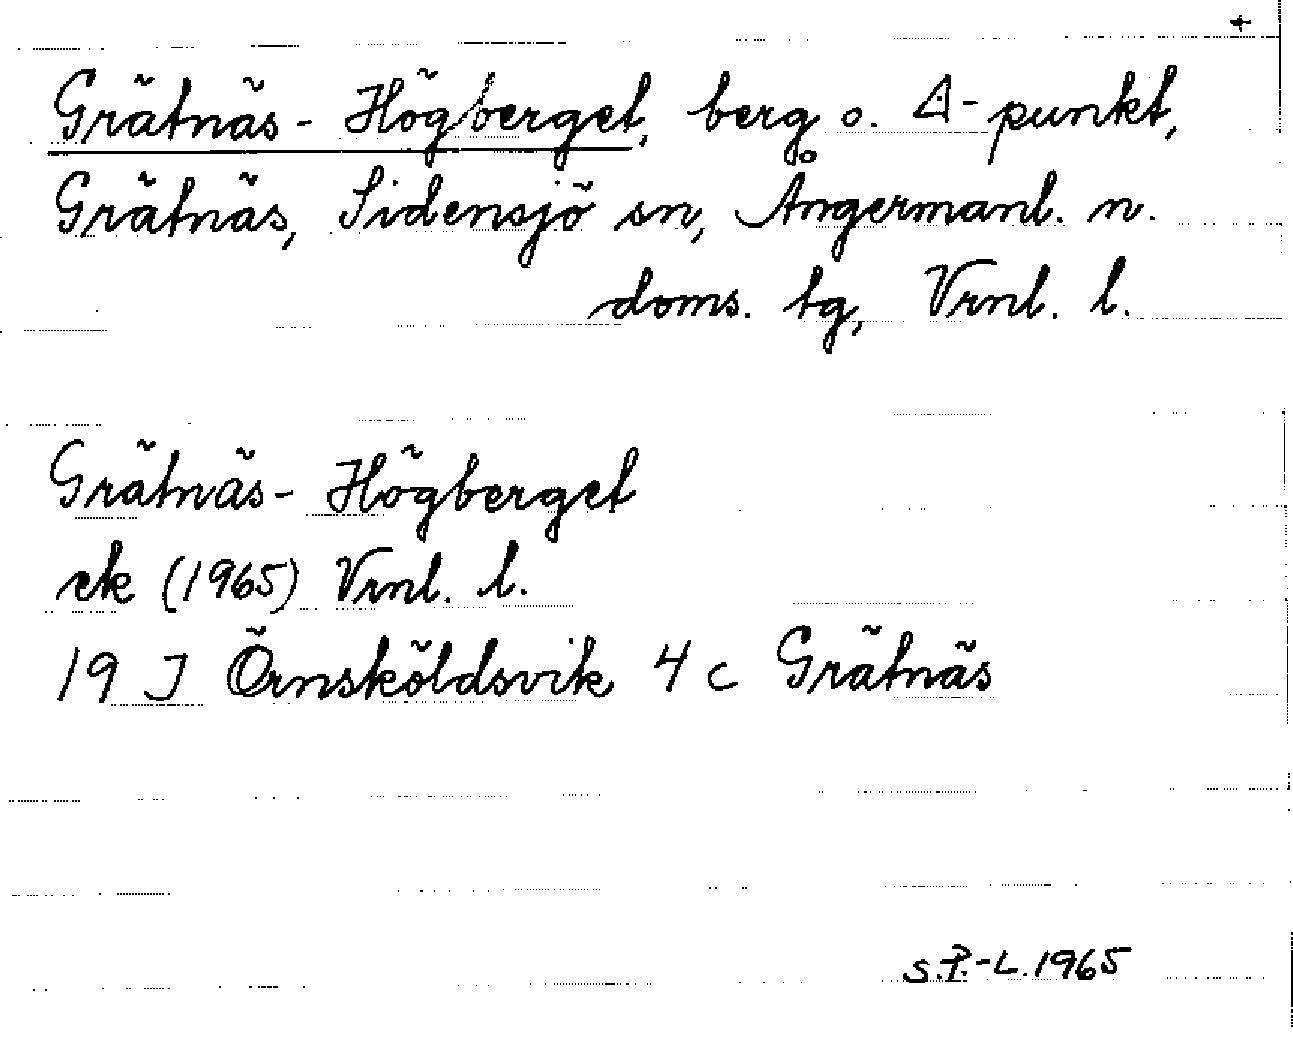 +
Grätnäs-Högberget, berg o. Δ-punkt,
Grätnäs, Sidensjö sn, Ångermanl. n.
doms. tg, Vrnl. l.
Grätnäs-Högberget
ek (1965) Vrnl. l.
19 J Örnsköldsvik 4 c Grätnäs
S.P.-L. 1965